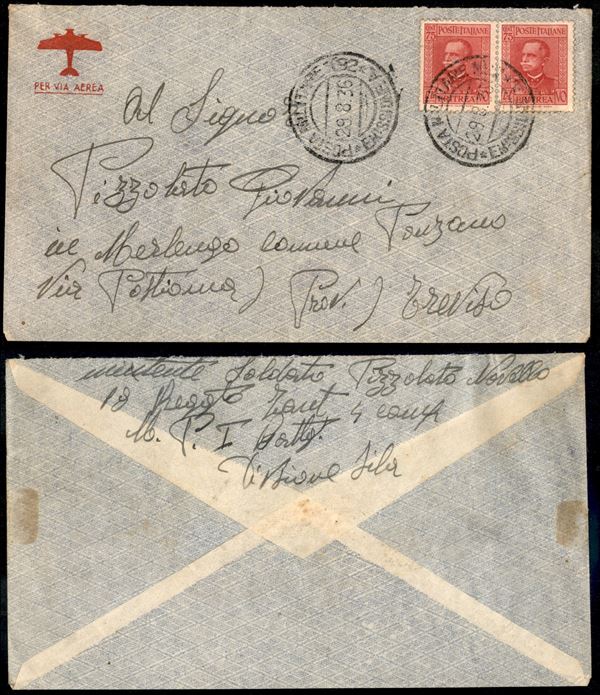 PER VIA AEREA
POSTE ITALIANE POSTE ITALIANE
CENT 75
ERITREA ERITREA
10
POSTA MILITARE (92)
29.8.36
Al Signor
Pizzolato Giovanni
in Merlengo Comune Ponzano
Via Postioma) Prov.) Treviso
mittente Soldato Pizzolato Novello
18 Regg. Fant 4 comp
M. P. I Batt.
Divisione Sila